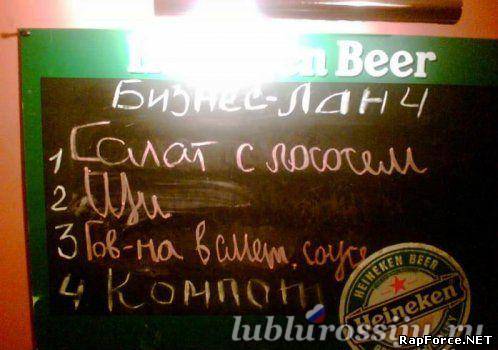 Heineken Beer
Бизнес-Ланч
1 Салат с лососем
2 Щи
3 Гов-на в смет. соусе
4 Компот
HEINEKEN BEER
Heineken
lublurossiyu.ru
RapForce.NET